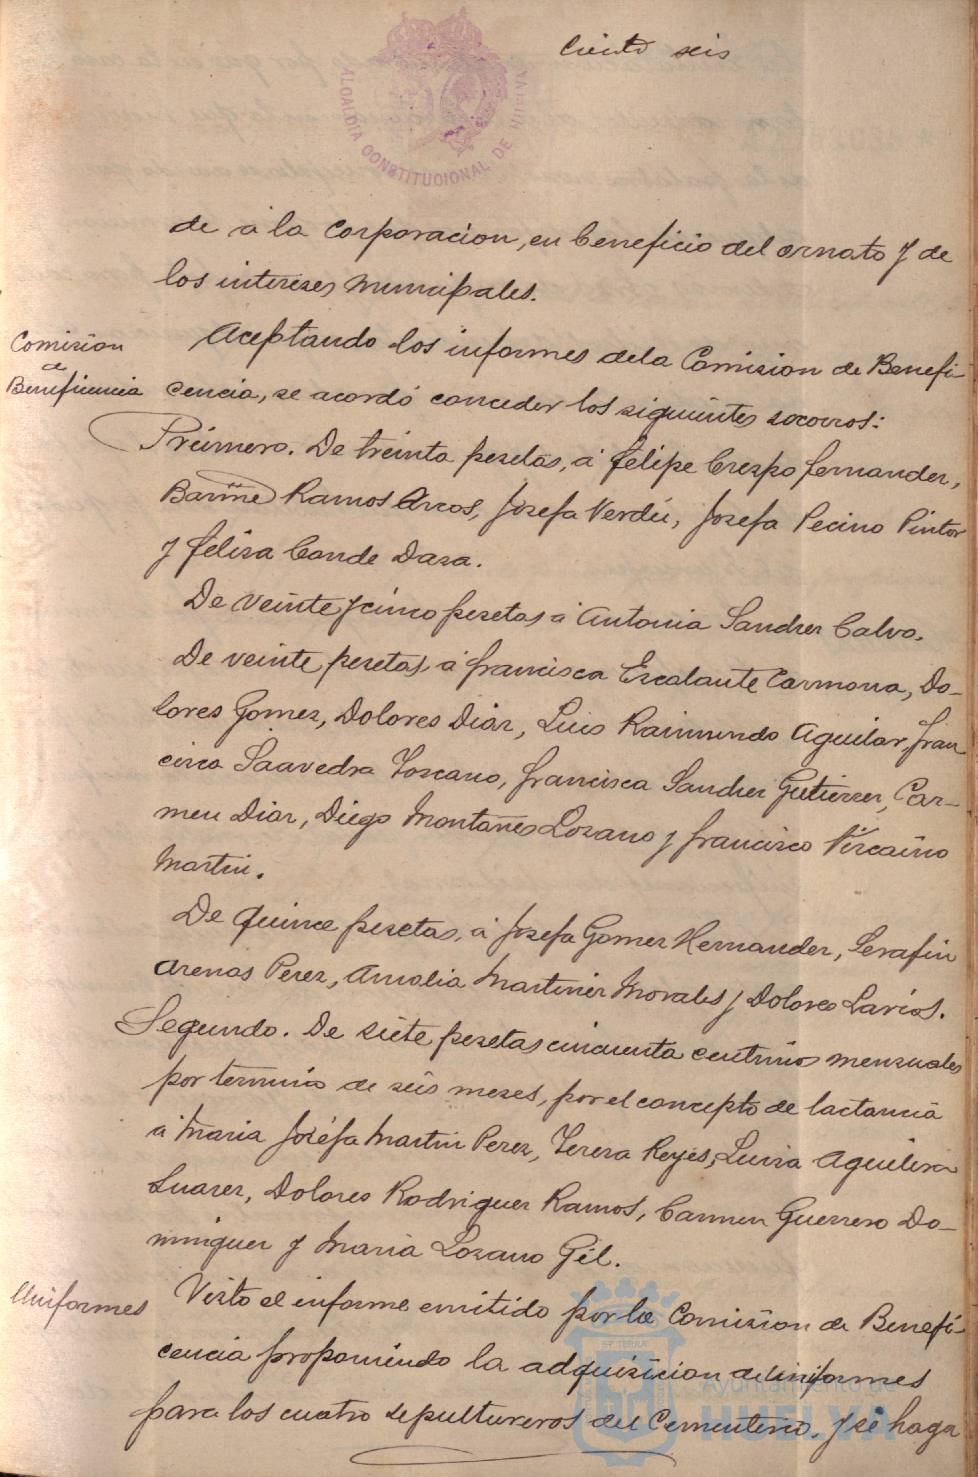 Ciento seis
ALCALDIA CONSTITUCIONAL DE HUELVA
de á la Corporacion, en beneficio del ornato y de
los intereses municipales.
Comision
de
Beneficencia
Aceptando los informes dela Comision de Benefi
cencia, se acordó conceder los siguientes socorros:
Primero. De treinta pesetas, á Felipe Crespo Fernandez,
Ramos Arcos, Josefa Verdú, Josefa Pecino Pintor
y Felisa Conde Daza.
De veinte y cinco pesetas á Antonia Sanchez Calvo.
De veinte pesetas, á Francisca Escalante Carmona, Do-
lores Gomez, Dolores Diaz, Luis Raimundo Aguilar, Fran
cisco Saavedra Toscano, Francisca Sanchez Gutierrez, Car-
men Diaz, Diego Montañes Lozano y Francisco Vizcaino
Martin.
De quince pesetas, á Josefa Gomez Hernandez, Serafin
Arenas Perez, Amalia Martinez Morales y Dolores Larios.
Segundo. De siete pesetas cincuenta centimos mensuales
por termino de seis meses, por el concepto de lactancia
á Maria Joséfa Martin Perez, Teresa Reyes, Luisa Aguilera
Suarez, Dolores Rodriguez Ramos, Carmen Guerrero Do-
minguez y Maria Lozano Gil.
Uniformes
Visto el informe emitido por la Comision de Benefi-
cencia proponiendo la adquisicion de uniformes
para los cuatro sepultureros del Cementerio, y se haga
Ayuntamiento de
HUELVA